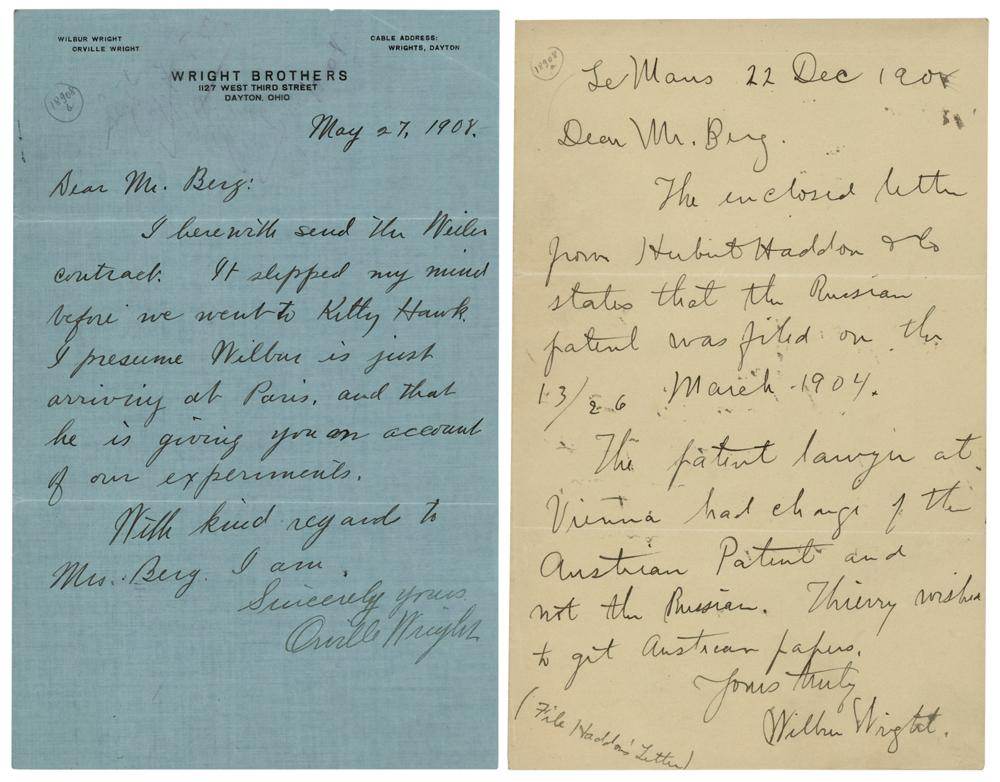 WILBUR WRIGHT
ORVILLE WRIGHT
CABLE ADDRESS:
WRIGHTS, DAYTON
WRIGHT BROTHERS
1127 WEST THIRD STREET
DAYTON, OHIO
18908
May 27, 1908.
Dear Mr. Berg:
I herewith send the Weiler
contract. It slipped my mind
before we went to Kitty Hawk.
I presume Wilbur is just
arriving at Paris, and that
he is giving you an account
of our experiments.
With kind regard to
Mrs. Berg. I am,
Sincerely yours
Orville Wright
18908
Le Mans 22 Dec 1908
Dear Mr. Berg.
The enclosed letter
from Hubert Haddon & Co
states that the Russian
patent was filed on the
13/26 March 1904.
The patent lawyer at
Vienna had charge of the
Austrian Patent and
not the Russian. Thierry wished
to get Austrian papers.
Yours truly
Wilbur Wright.
(File Haddons' Letter)